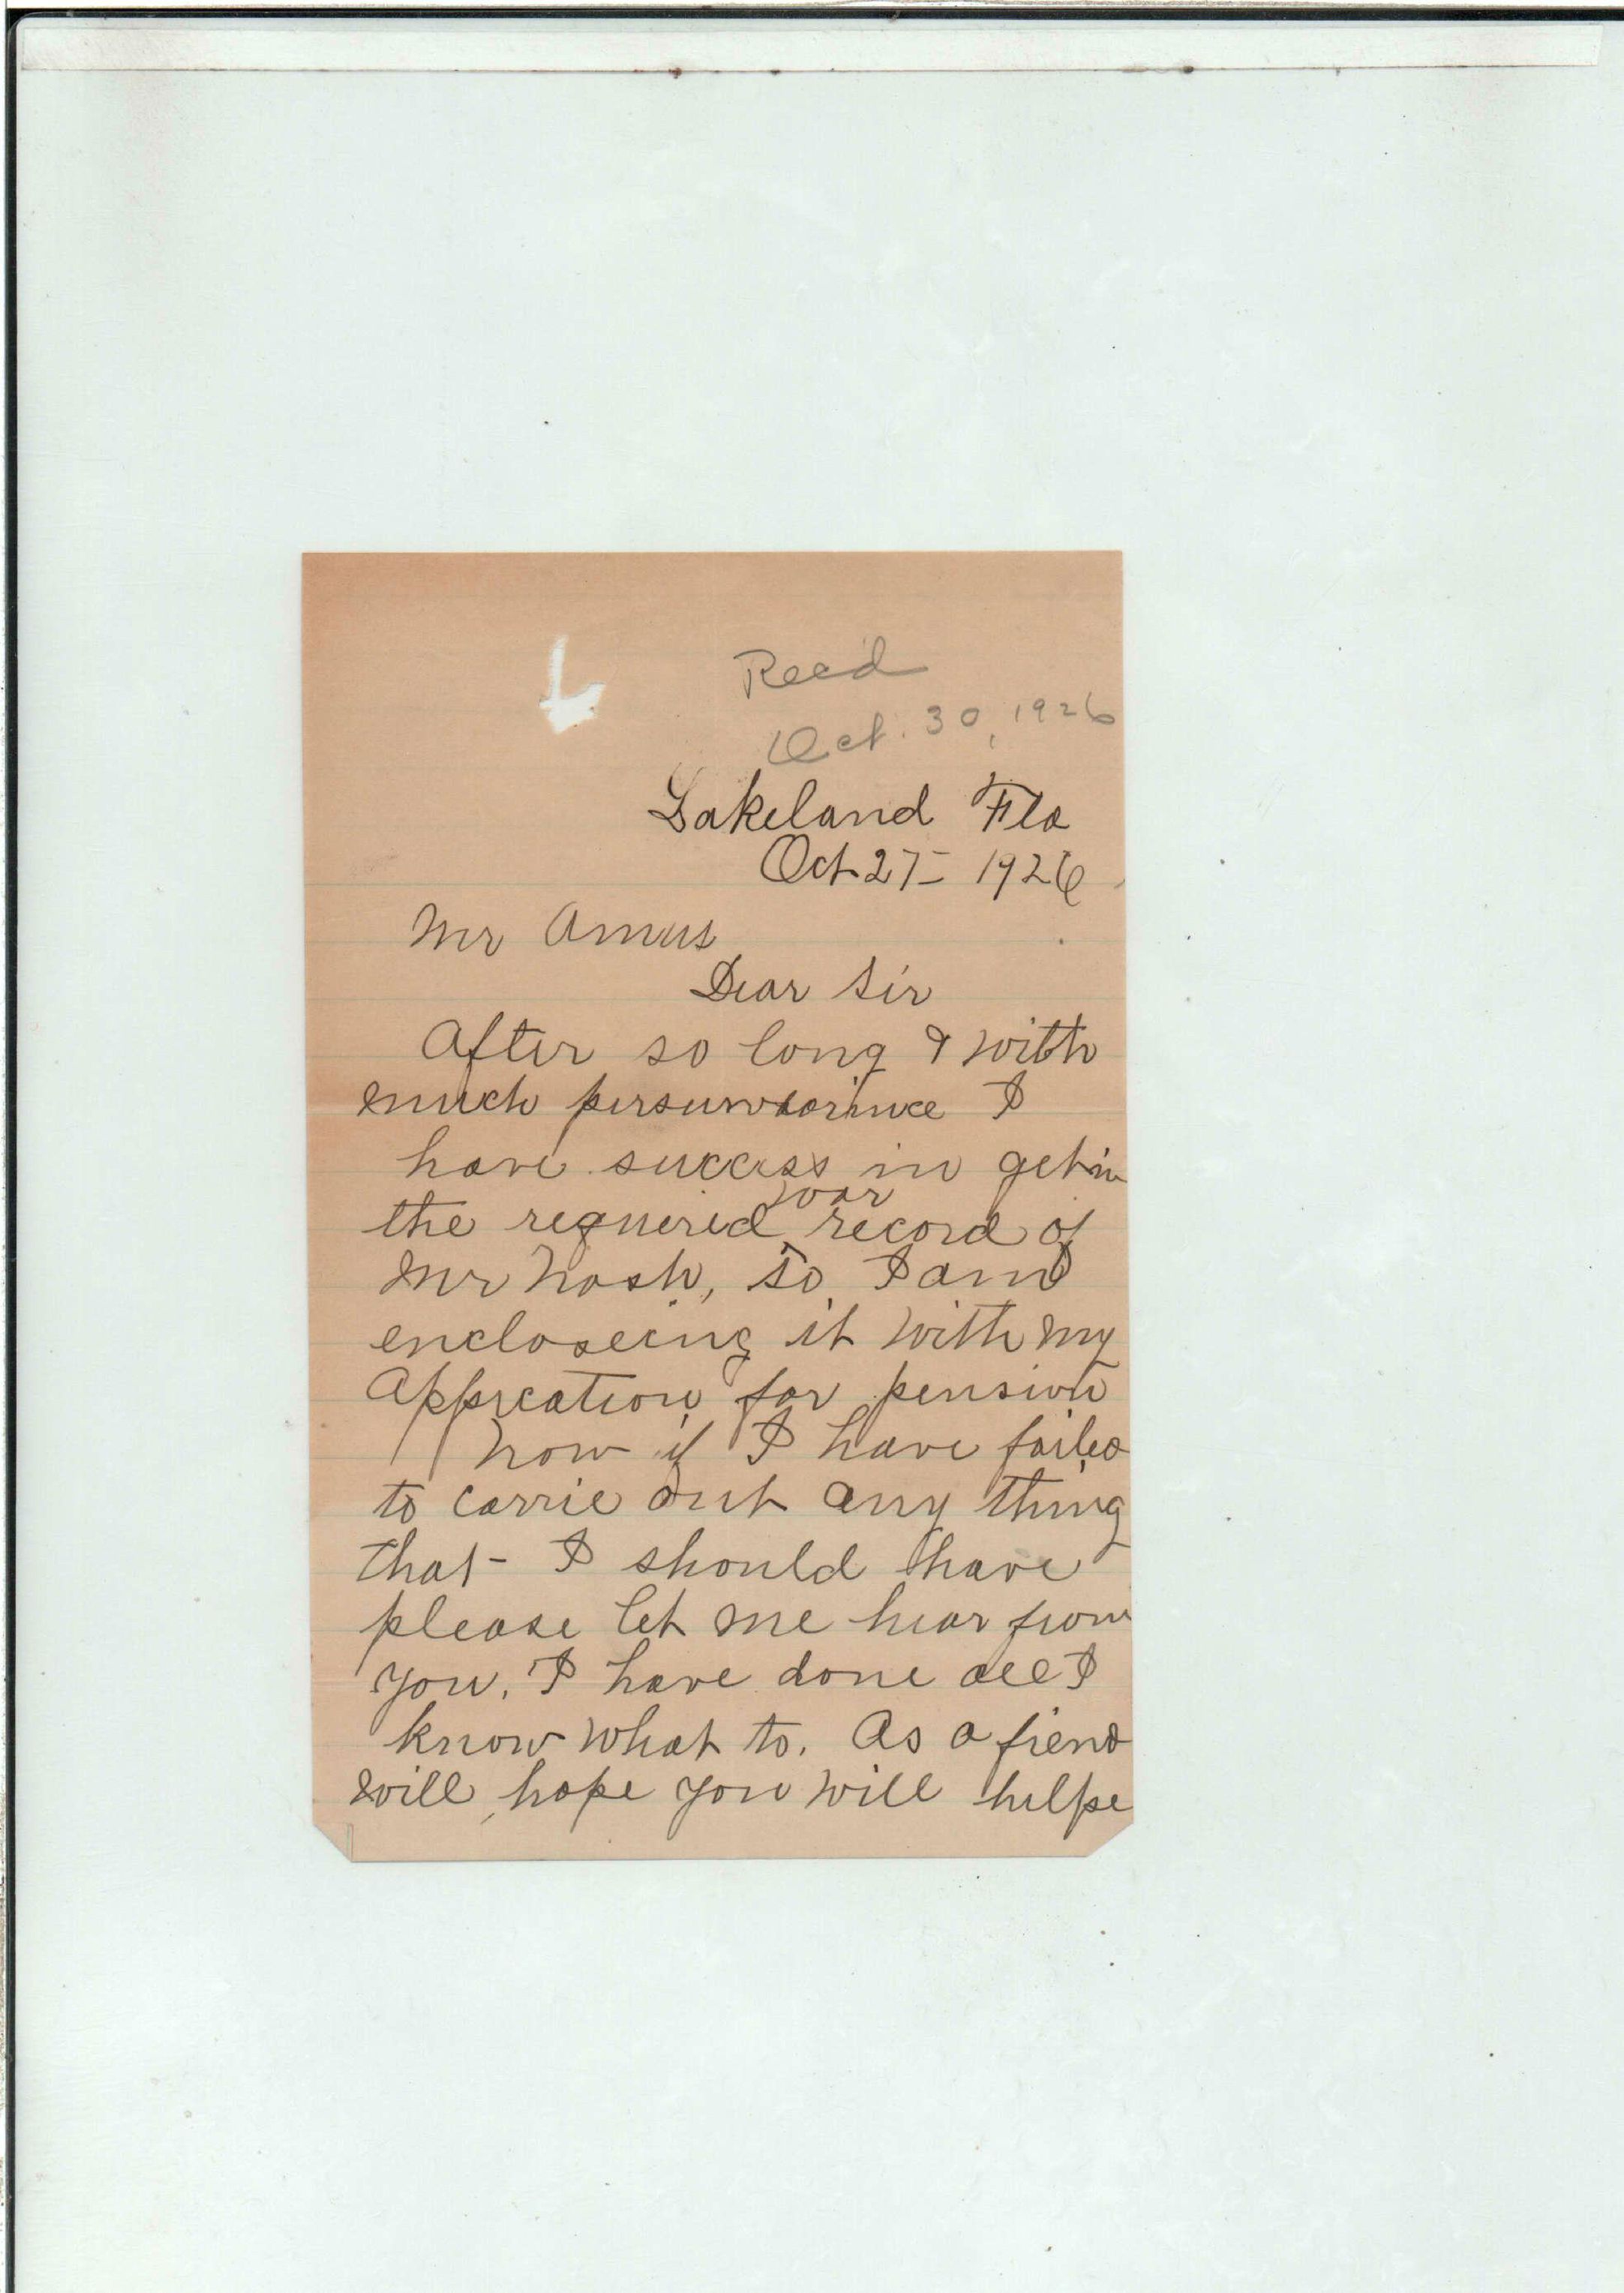 Recd
Oct. 30, 1926
Lakeland Fla
Oct 27- 1926
Mr Amus
Dear Sir
After so long & with
much I
have success in getin
the requered war record of
Mr Nash, so I am
encloseing it with my
Appication for pension
Now if I have failed
to carrie out any thing
that - I should have
please let me hear from
you. I have done all I
know what to. As a fiend
will hope you will helpe